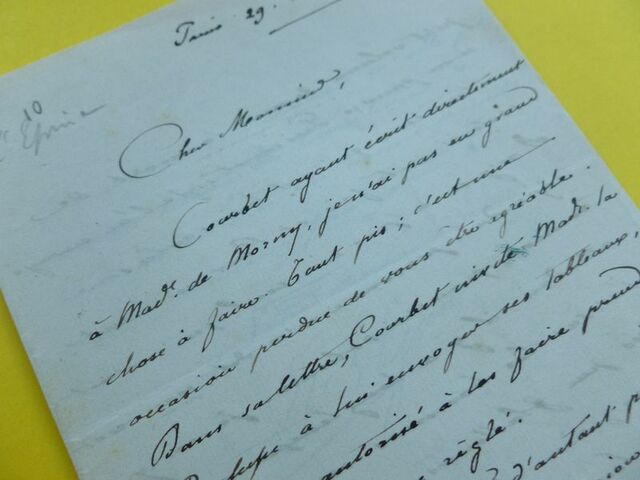 Paris 29
10
Cher Monsieur,
Courbet ayant écrit directement
à Made. de Morny, je n'ai pas eu grand
chose à faire. Tant pis ; c'est une
occasion perdue de vous être agréable.
Dans sa lettre, Courbet invite Made. la
à lui envoyer ses tableaux,
autorisé à les faire prendre
réglé.
d'autant p